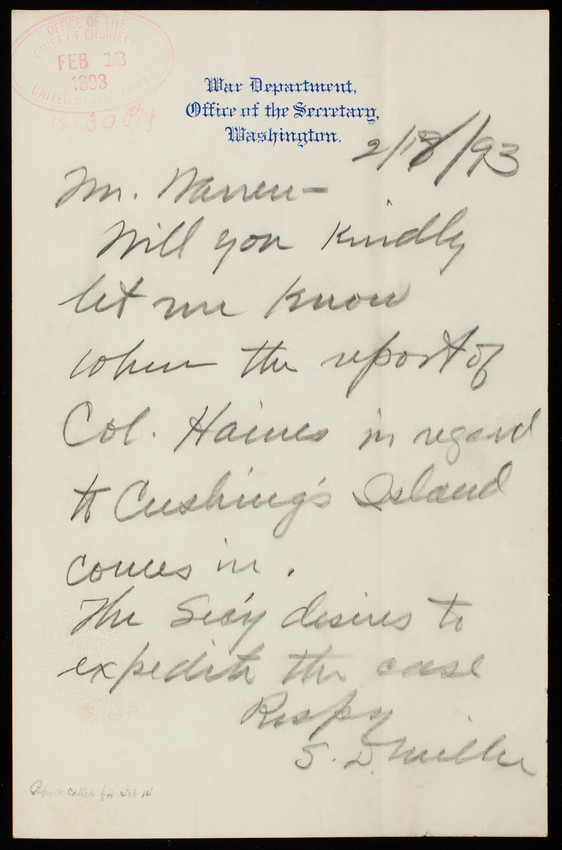 OFFICE OF THE
CHIEF OF ENGINEERS
FEB 13
1893
UNITED STATES ARMY
War Department,
Office of the Secretary,
Washington.
2/13/93
Mr. Warren-
Will you kindly
let me know
when the report of
Col. Haines in regard
to Cushing's Island
comes in.
The Sec'y desires to
expedite the case
Respy
S. D. Miller
called for Feb 14